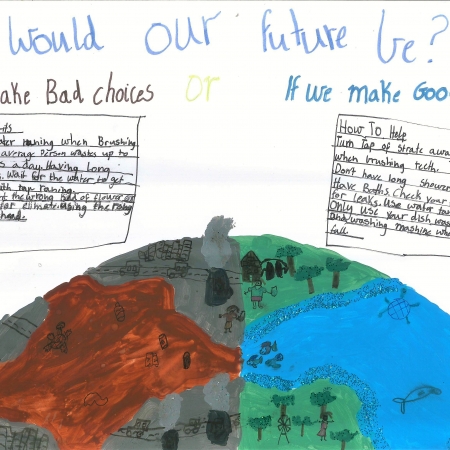 would our future be?
ake Bad choices or If we make Goo
ter runing when Brushing.
averag Person wastes up to
s a day. Having Long
. Wait for the water to get
ith tap runing.
the wrong kind of flower or
for climate. using the rong
How To Help
Turn Tap of strate awa
when brushing teeth.
Don't have long shower
Have Baths. Check your
for leaks. Use water tan
Only use your dish was
and washing mashine whe
full